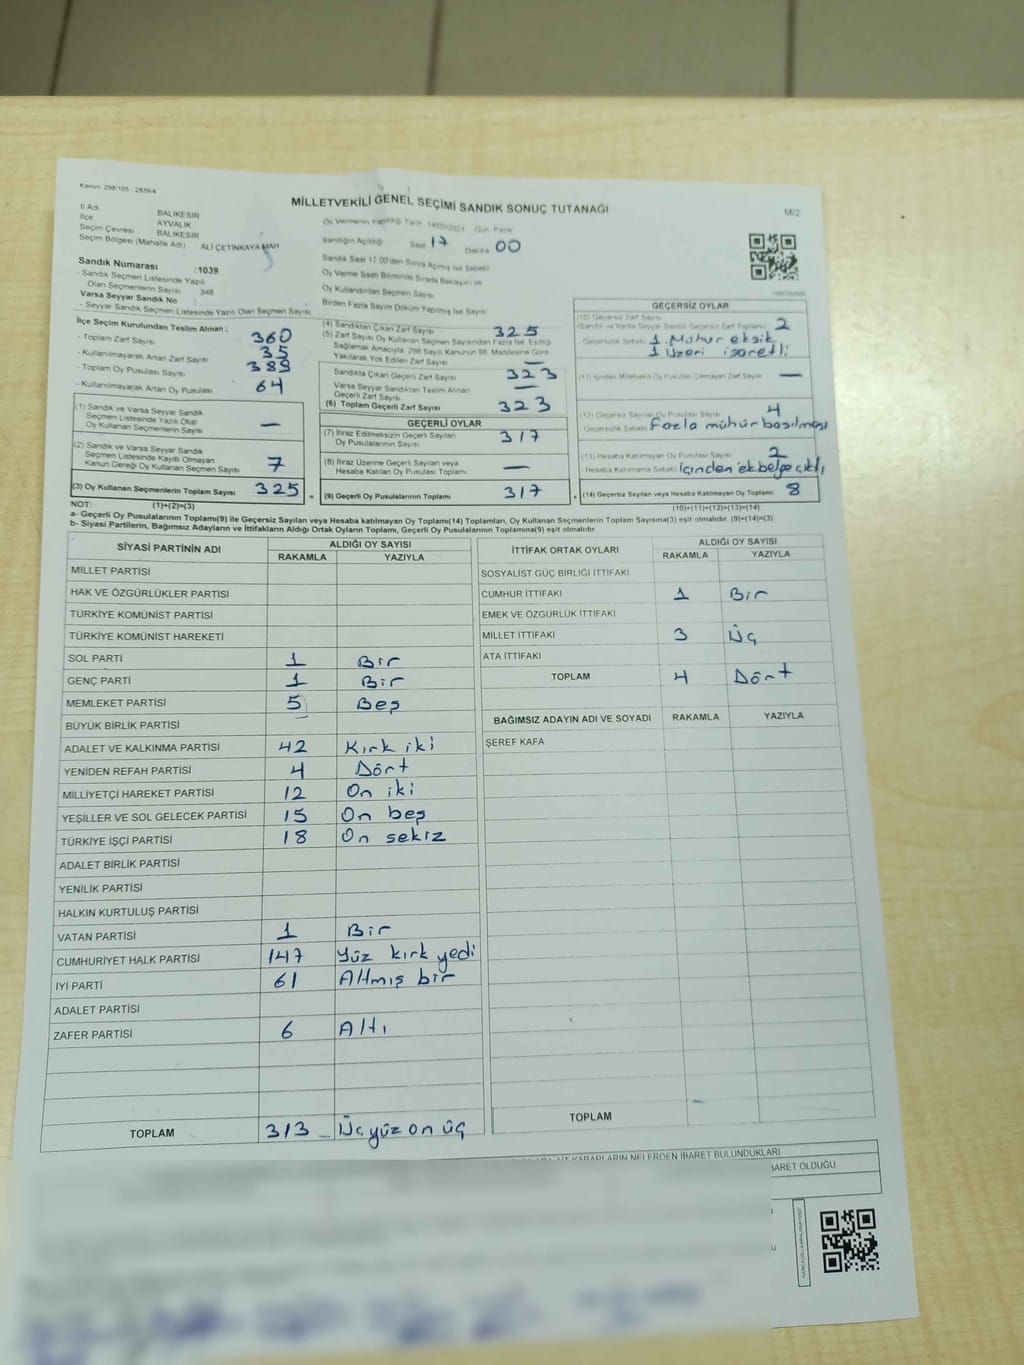 Kanun: 298/105 2839/4
MİLLETVEKİLİ GENEL SEÇİMİ SANDIK SONUÇ TUTANAĞI
M/2
İl Adı BALIKESİR
İlçe AYVALIK
Seçim Çevresi BALIKESİR
Seçim Bölgesi (Mahalle Adı) ALİ ÇETİNKAYA MAH
Oy Vermenin Yapıldığı Tarih 14/05/2023 Gün Pazar
Sandığın Açıldığı Saat 17 Dakika 00
Sandık Saat 17.00'den Sonra Açılmış İse Sebebi
Oy Verme Saati Bitiminde Sırada Bekleyen ve
Oy Kullandırılan Seçmen Sayısı
Birden Fazla Sayım Döküm Yapılmış İse Sayısı
Sandık Numarası :1039
- Sandık Seçmen Listesinde Yazılı
Olan Seçmenlerin Sayısı 348
Varsa Seyyar Sandık No :
- Seyyar Sandık Seçmen Listesinde Yazılı Olan Seçmen Sayısı
İlçe Seçim Kurulundan Teslim Alınan :
- Toplam Zarf Sayısı 360
- Kullanılmayarak Artan Zarf Sayısı 35
- Toplam Oy Pusulası Sayısı 389
- Kullanılmayarak Artan Oy Pusulası 64
(1) Sandık ve Varsa Seyyar Sandık
Seçmen Listesinde Yazılı Olup
Oy Kullanan Seçmenlerin Sayısı —
(2) Sandık ve Varsa Seyyar Sandık
Seçmen Listesinde Kayıtlı Olmayan
Kanun Gereği Oy Kullanan Seçmen Sayısı 7
(3) Oy Kullanan Seçmenlerin Toplam Sayısı 325 =
(4) Sandıktan Çıkan Zarf Sayısı 325
(5) Zarf Sayısı Oy Kullanan Seçmen Sayısından Fazla İse, Eşitliği
Sağlamak Amacıyla, 298 Sayılı Kanunun 98. Maddesine Göre
Yakılarak Yok Edilen Zarf Sayısı —
Sandıkta Çıkan Geçerli Zarf Sayısı 323
Varsa Seyyar Sandıktan Teslim Alınan
Geçerli Zarf Sayısı —
(6) Toplam Geçerli Zarf Sayısı 323
GEÇERLİ OYLAR
(7) İtiraz Edilmeksizin Geçerli Sayılan
Oy Pusulalarının Sayısı 317
(8) İtiraz Üzerine Geçerli Sayılan veya
Hesaba Katılan Oy Pusulası Toplamı —
(9) Geçerli Oy Pusulalarının Toplamı 317 +
GEÇERSİZ OYLAR
(10) Geçersiz Zarf Sayısı
(Sandık ve Varsa Seyyar Sandık Geçersiz Zarf Toplamı) 2
- Geçersizlik Sebebi 1 Mühür eksik
1 Üzeri işaretli
(11) İçinden Milletvekili Oy Pusulası Çıkmayan Zarf Sayısı —
(12) Geçersiz Sayılan Oy Pusulası Sayısı 4
Geçersizlik Sebebi Fazla mühür basılması
(13) Hesaba Katılmayan Oy Pusulası Sayısı 2
Hesaba Katılmama Sebebi İçinden ek belge çıktı
(14) Geçersiz Sayılan veya Hesaba Katılmayan Oy Toplamı 8
NOT: (1)+(2)=(3)
(10)+(11)+(12)+(13)=(14)
a- Geçerli Oy Pusulalarının Toplamı(9) ile Geçersiz Sayılan veya Hesaba katılmayan Oy Toplamı(14) Toplamları, Oy Kullanan Seçmenlerin Toplam Sayısına(3) eşit olmalıdır. (9)+(14)=(3)
b- Siyasi Partilerin, Bağımsız Adayların ve İttifakların Aldığı Ortak Oyların Toplamı, Geçerli Oy Pusulalarının Toplamına(9) eşit olmalıdır.
SİYASİ PARTİNİN ADI ALDIĞI OY SAYISI
RAKAMLA YAZIYLA
MİLLET PARTİSİ
HAK VE ÖZGÜRLÜKLER PARTİSİ
TÜRKİYE KOMÜNİST PARTİSİ
TÜRKİYE KOMÜNİST HAREKETİ
SOL PARTİ 1 Bir
GENÇ PARTİ 1 Bir
MEMLEKET PARTİSİ 5 Beş
BÜYÜK BİRLİK PARTİSİ
ADALET VE KALKINMA PARTİSİ 42 Kırk iki
YENİDEN REFAH PARTİSİ 4 Dört
MİLLİYETÇİ HAREKET PARTİSİ 12 On iki
YEŞİLLER VE SOL GELECEK PARTİSİ 15 On beş
TÜRKİYE İŞÇİ PARTİSİ 18 On sekiz
ADALET BİRLİK PARTİSİ
YENİLİK PARTİSİ
HALKIN KURTULUŞ PARTİSİ
VATAN PARTİSİ 1 Bir
CUMHURİYET HALK PARTİSİ 147 Yüz kırk yedi
İYİ PARTİ 61 Altmış bir
ADALET PARTİSİ
ZAFER PARTİSİ 6 Altı
TOPLAM 313 Üç yüz on üç
İTTİFAK ORTAK OYLARI ALDIĞI OY SAYISI
RAKAMLA YAZIYLA
SOSYALİST GÜÇ BİRLİĞİ İTTİFAKI
CUMHUR İTTİFAKI 1 Bir
EMEK VE ÖZGÜRLÜK İTTİFAKI
MİLLET İTTİFAKI 3 Üç
ATA İTTİFAKI
TOPLAM 4 Dört
BAĞIMSIZ ADAYIN ADI VE SOYADI RAKAMLA YAZIYLA
ŞEREF KAFA
TOPLAM
KARARLARIN NELERDEN İBARET BULUNDUKLARI
İBARET OLDUĞU